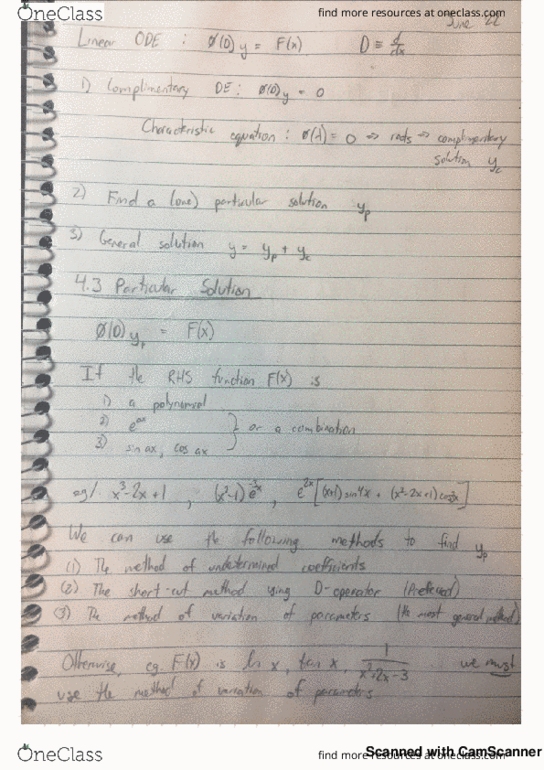 OneClass find more resources at oneclass.com
June 22
Linear ODE : Ø(D)y = F(x) D ≡ d/dx
1) Complimentary DE: Ø(D)y = 0
Characteristic equation : Ø(λ) = 0 => roots => complimentary
solution yc
2) Find a (one) particular solution yp
3) General solution y = yp + yc
4.3 Particular Solution
Ø(D)yp = F(x)
If the RHS function F(x) is
1) a polynomial
2) e^ax } or a combination
3) sin ax, cos ax
eg/ x³-2x+1 , (x²-1)e^-3x , e^2x[(x+1)sin4x + (x²-2x+1)cos
We can use the following methods to find yp
(1) The method of undetermined coefficients
(2) The short-cut method using D-operator (Preferred)
(3) The method of variation of parameters (the most general method)
Otherwise, eg. F(x) is ln x, tan x, 1/(x²+2x-3) we must
use the method of variation of parameters
Scanned with CamScanner
OneClass find more resources at oneclass.com